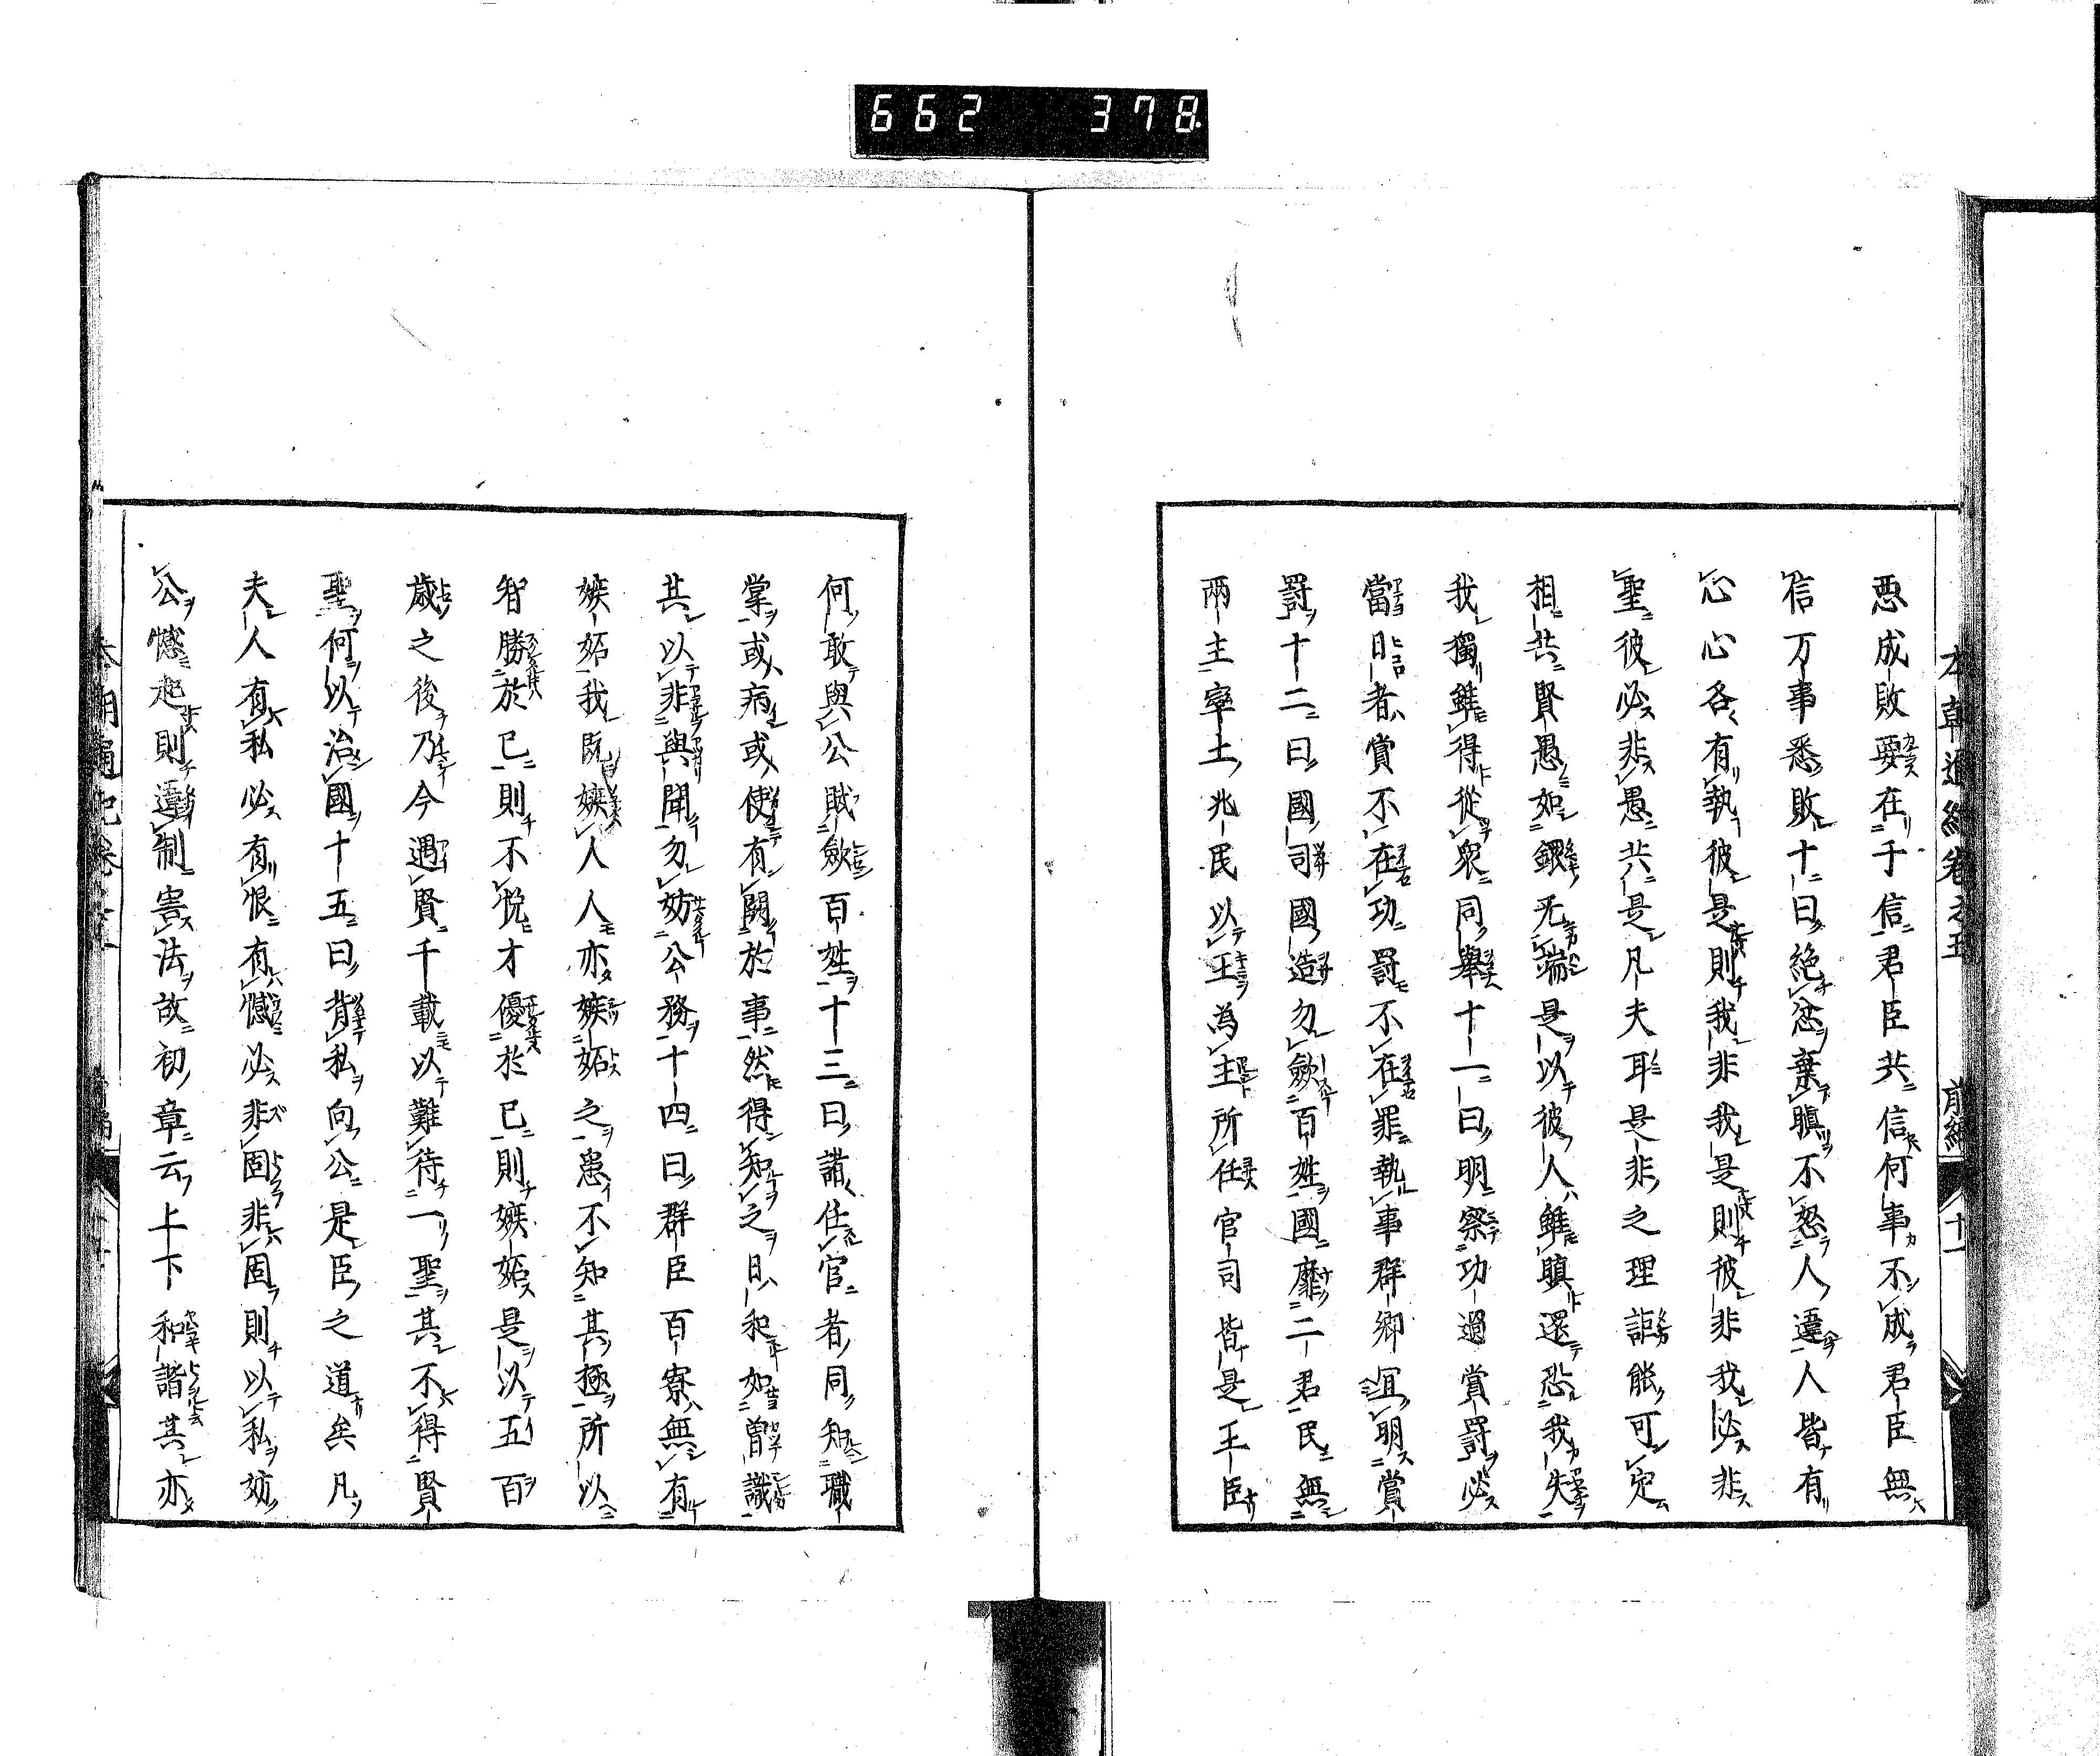 662 378
悪成敗要在于信君臣共信何事不成君臣無
信万事悉敗十曰絶忿棄瞋不怒人違人皆有
心心各有執彼是則我非我是則彼非我必非
聖彼必非愚共是凡夫耳是非之理詎能可定
相共賢愚如鐶无端是以彼人雖瞋還恐我失
我獨雖得從衆同擧十一曰明察功過賞罰必
當日者賞不在功罰不在罪執事群卿宜明賞
罰十二曰國司國造勿歛百姓國靡二君民無
兩主率土兆民以王為主所任官司皆是王臣
何敢與公賦歛百姓十三曰諸任官者同知職
掌或病或使有闕於事然得知之日和如曽識
其以非與聞勿妨公務十四曰群臣百寮無有
嫉妬我既嫉人人亦嫉妬之患不知其極所以
智勝於已則不悦才優於已則嫉妬是以五百
歳之後乃今遇賢千載以難待一聖其不得賢
聖何以治國十五曰背私向公是臣之道矣凡
夫人有私必有恨有憾必非固非固則以私妨
公憾起則違制害法故初章云上下和諧其亦